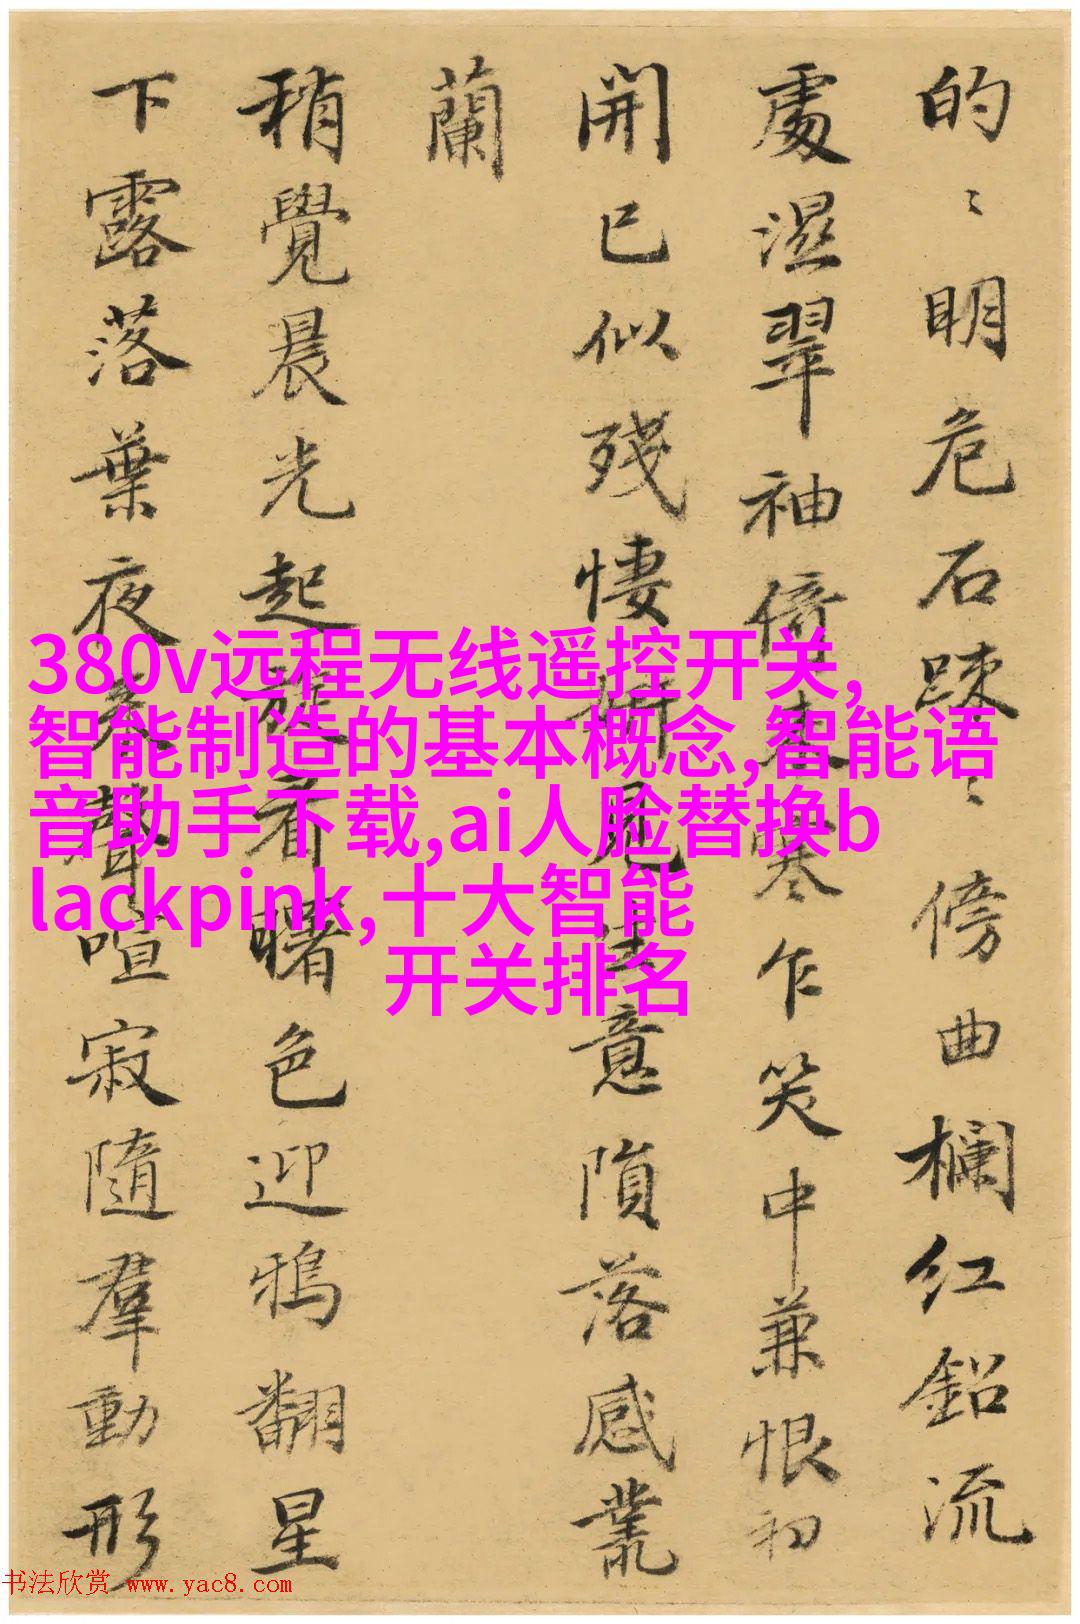 的〻明危石疎〻傍曲欄红鉛流
處濕翠袖倚寒乍笑中兼恨初
開已似残悽意隕落感叢
蘭
稍覺晨光起看曙色迎鴉翻星
下露落葉夜聲喧寂隨羣動形
380v远程无线遥控开关,
智能制造的基本概念,智能语
音助手下载,ai人脸替换b
lackpink,十大智能
开关排名
书法欣赏 www.yac8.com